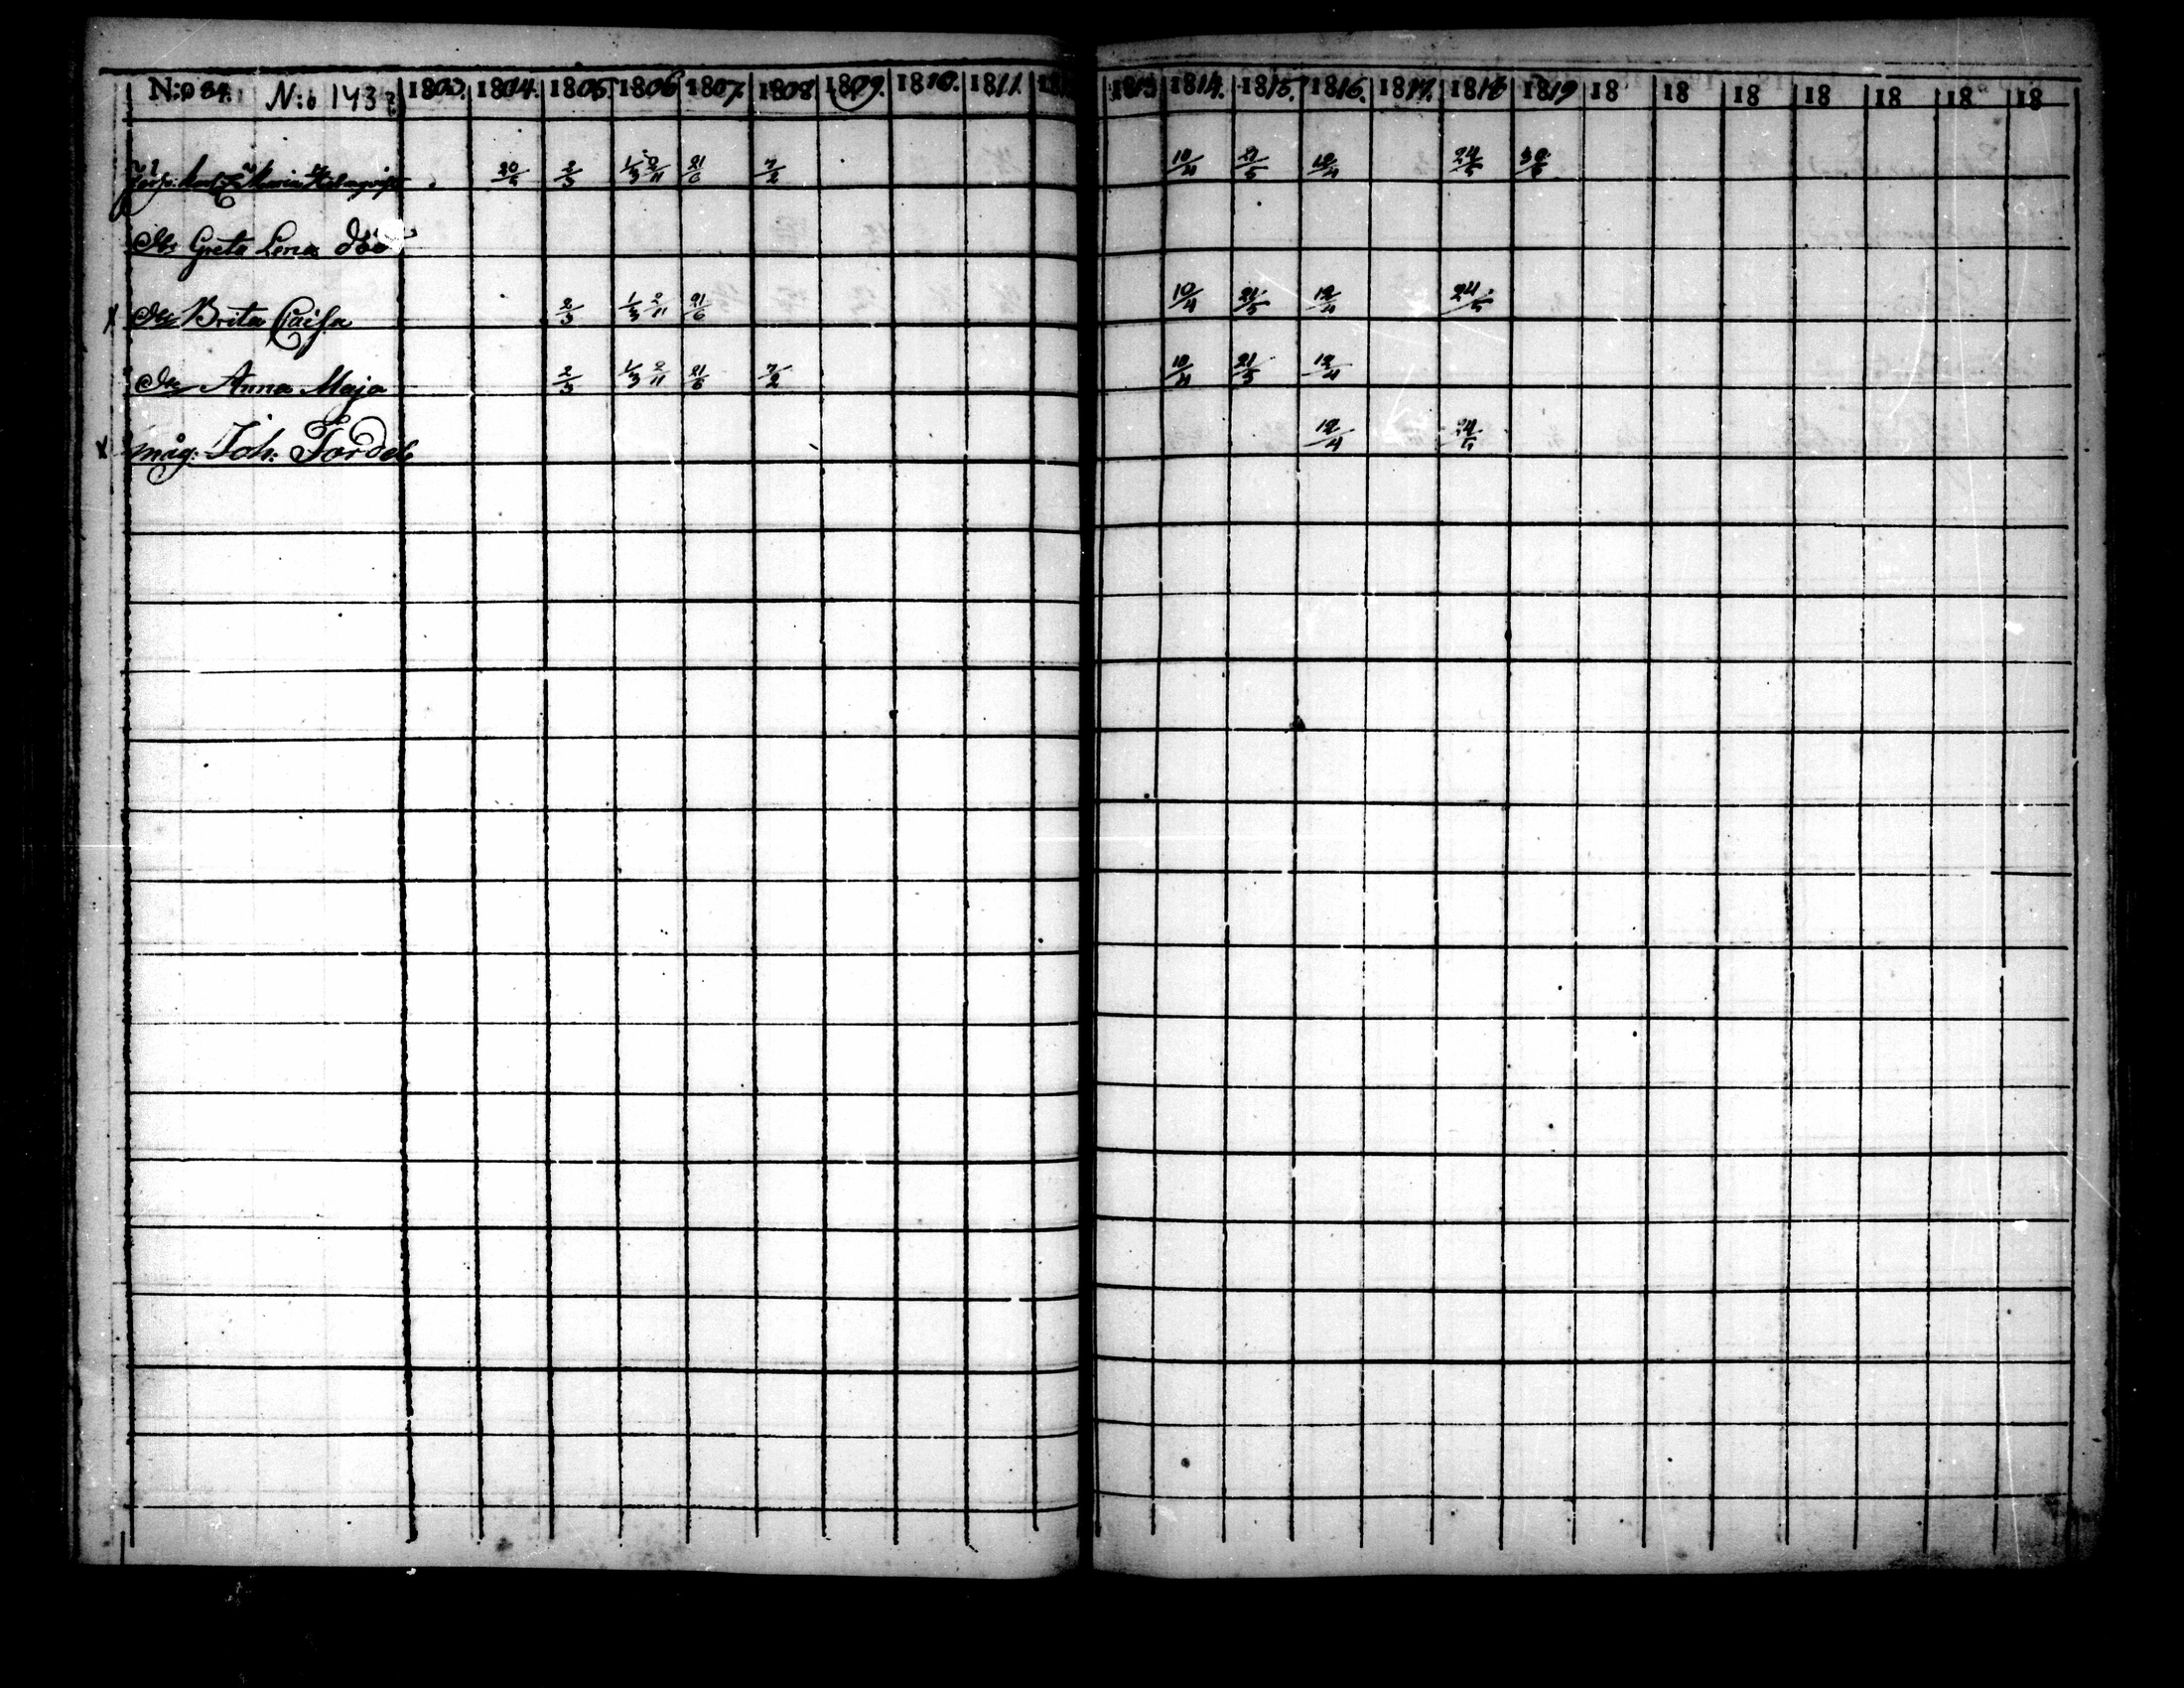 N:o 84. N:o 143 1803. 1804. 1805. 1806 1807. 1808 1809. 1810. 1811. 18 1813 1814. 1815. 1816. 1817. 1818 1819 18 18 18 18 18 18 18
Maria Holmqvist 20/5 2/3 1/3 2/11 21/6 7/2 10/4 21/5 12/4 24/5 30/6
Dr Greta Lena död
x Dr Brita Caisa 2/3 1/3 2/11 21/6 10/4 21/5 12/4 24/5
Dr Anna Maja 2/3 1/3 2/11 21/6 7/2 10/4 21/5 12/4
x måg: Joh: Fordel 12/4 24/5